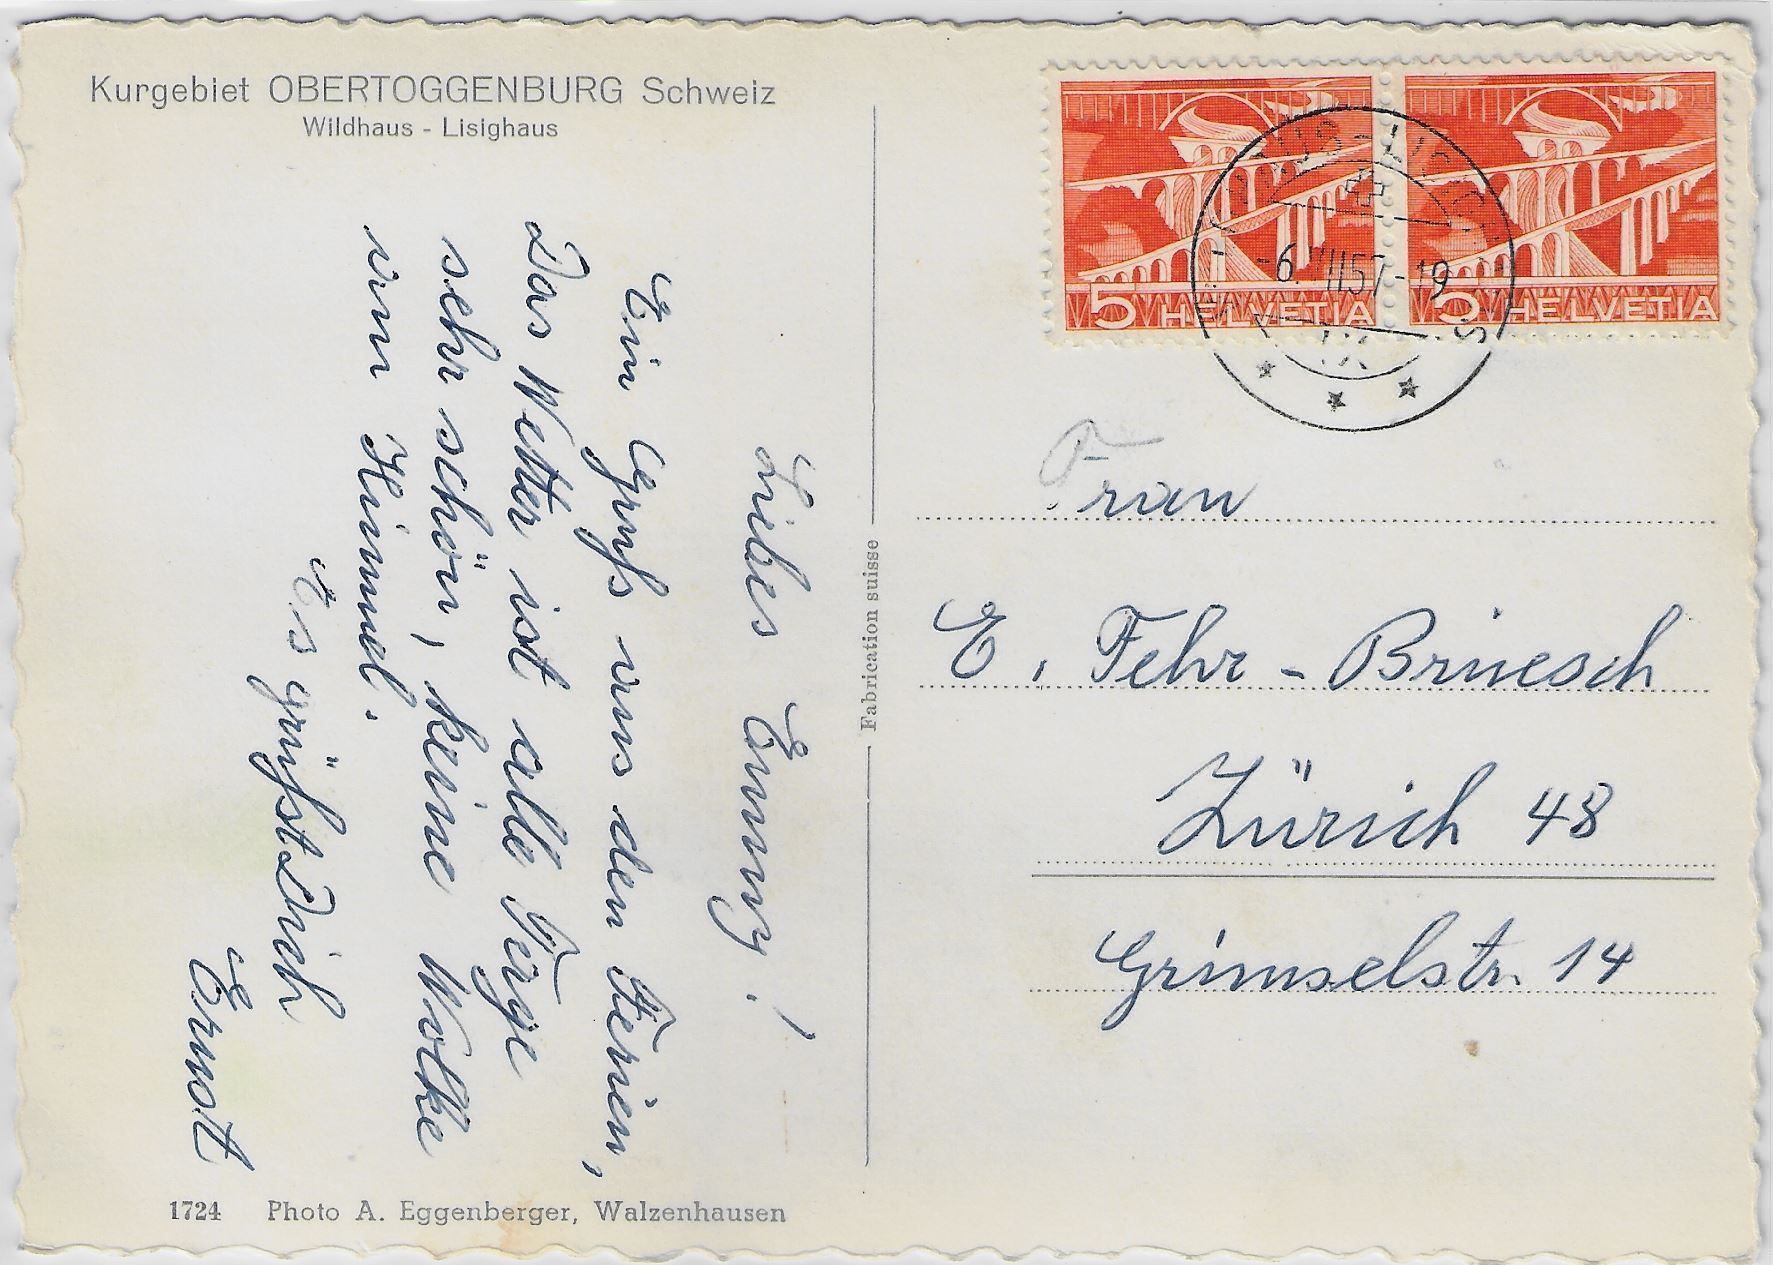 Kurgebiet OBERTOGGENBURG Schweiz
Wildhaus - Lisighaus
Liebes Emmy!
Ein Gruß aus den Ferien,
Das Wetter ist alle Tage
sehr schön, keine Wolke
am Himmel.
Es grüßt Dich
Ernst
1724 Photo A. Eggenberger, Walzenhausen
Fabrication suisse
5 HELVETIA
5 HELVETIA
HAUS-LISIG
-6. VIII 57-19
Frau
E. Fehr-Brüesch
Zürich 48
Grimselstr. 14